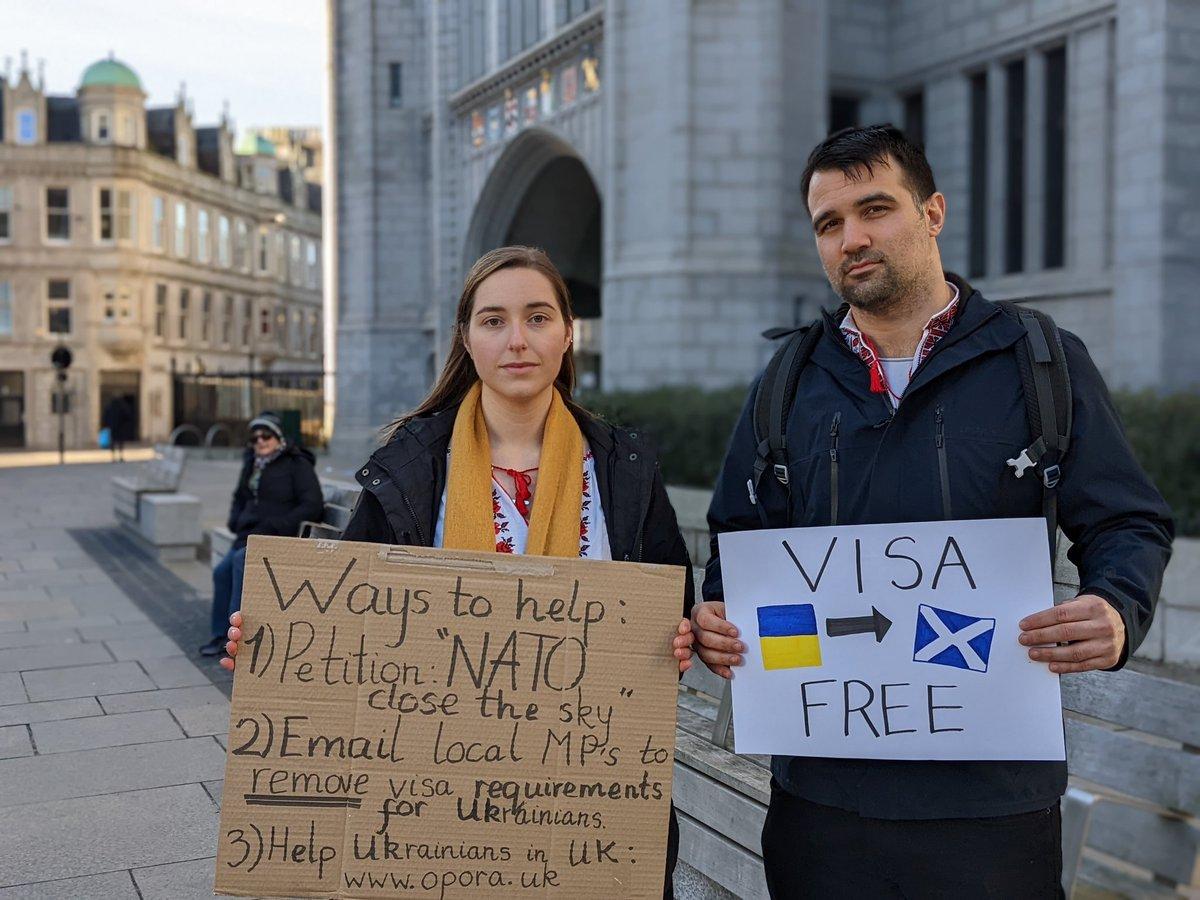 Ways to help:
1) Petition: "NATO
close the sky"
2) Email local MP's to
remove visa requirements
for Ukrainians.
3) Help Ukrainians in UK:
www.opora.uk
VISA
FREE